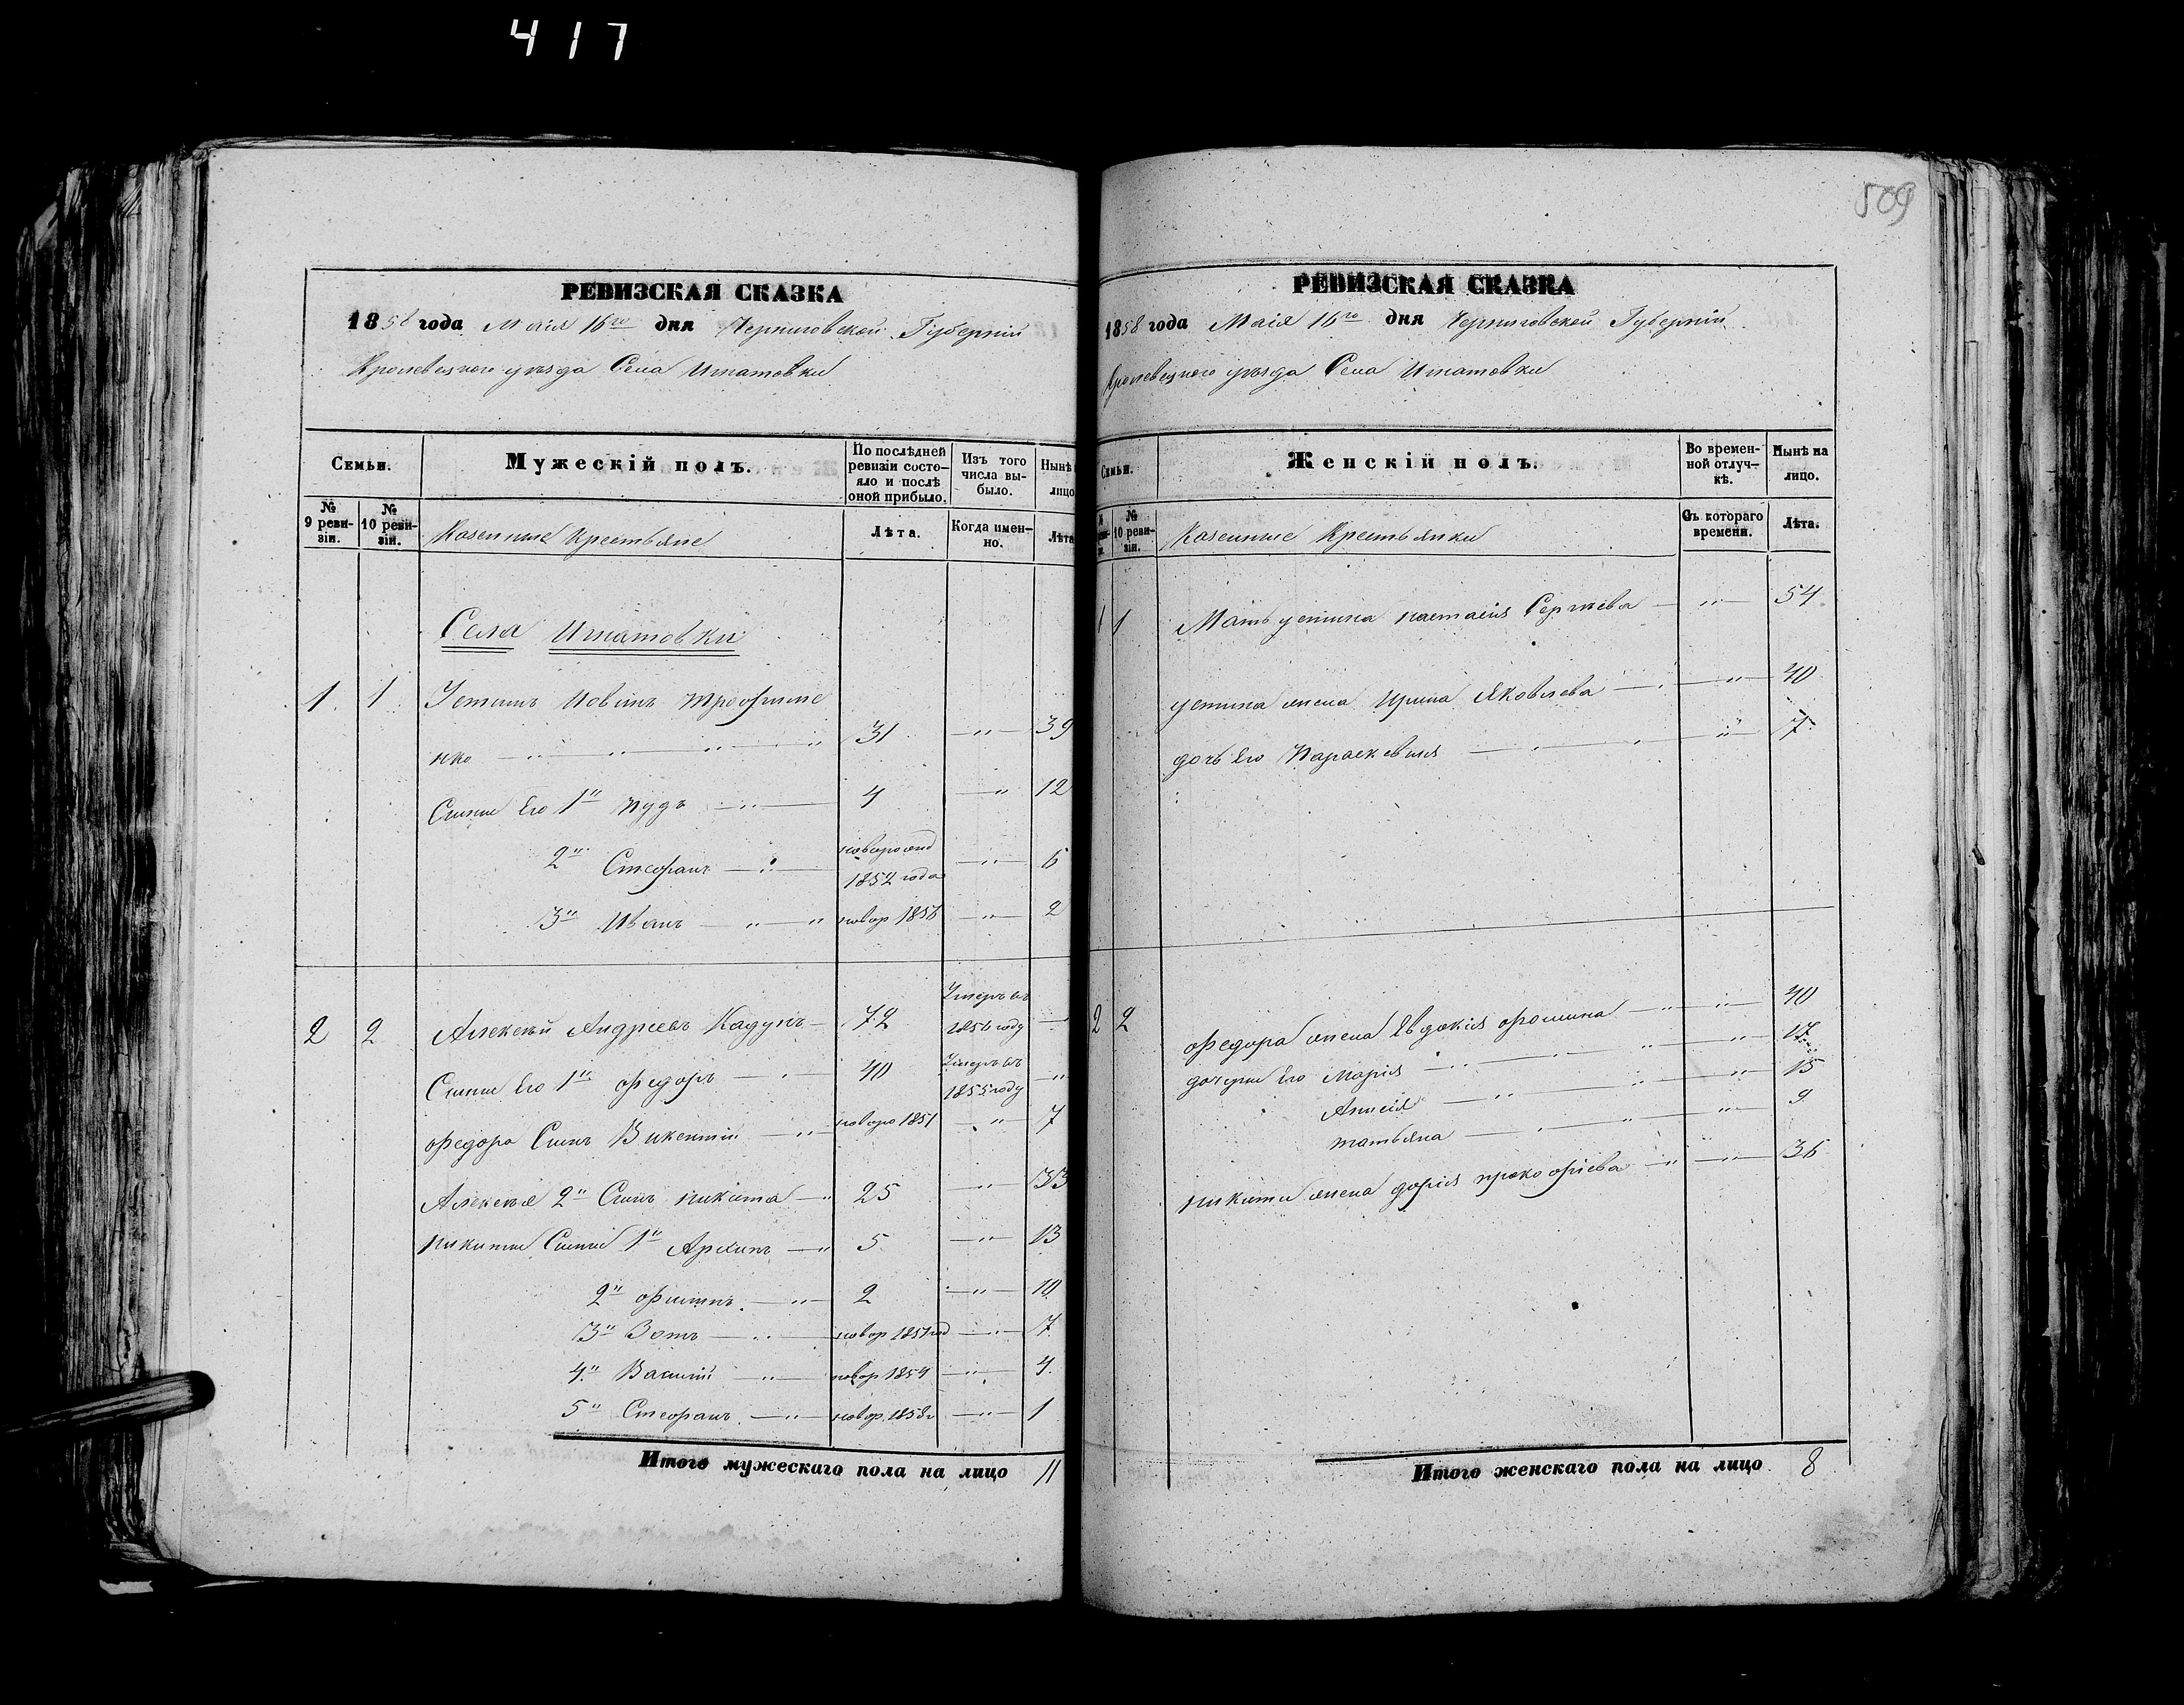 417
РЕВИЗСКАЯ СКАЗКА
1858 года Маія 16го дня Черниговской Губерніи
Кролевецкого уезда Села Игнатовки
Семьи.
Мужескій полъ.
По послѣдней ревизіи состояло и послѣ оной прибыло.
Изъ того числа выбыло.
Нынѣ на лицо
№ 9 ревизіи.
№ 10 ревизіи.
Казенные Крестьяне
Лѣта.
Когда именно.
Лѣта
Села Игнатовки
1. 1. Устимъ Иовинъ Трофиме
нко 31 39
Сыны Его 1й Пудъ 4 12
2й Стефанъ новорожд 1852 года 6
3й Иванъ новор 1856 2
2 2 Алексѣй Андреевъ Кадунъ 72 Умеръ въ 1856 году
Сыны Его 1й Федоръ 40 Умеръ въ 1855 году
Федора Сынъ Викентий новоро 1851 7
Алексѣя 2й Сынъ Никита 25 33
Никиты Сыны 1й Архипъ 5 13
2й Филипъ 2 10
3й Зотъ новор 1851 год 7
4й Василий новор 1854 4
5й Стефанъ новор. 1858г 1
Итого мужескаго пола на лицо 11
509
РЕВИЗСКАЯ СКАЗКА
1858 года Маія 16го дня Черниговской Губерніи
Кролевецкого уезда Села Игнатовки
Семьи.
Женскій полъ.
Во временной отлучкѣ.
Нынѣ на лицо.
№ 10 ревизіи.
Казенные Крестьянки
Съ котораго времени.
Лѣта.
1 1 Мать устина настасия Сергѣева 54
устина жена Ирина Яковлева 40
дочь Его Параскевия 7
2 2 Федора жена Евдокия Фомина 40
дочери Его Мария 17
Анисия 15
татьяна 9
никиты жена дария прокофиева 36
Итого женскаго пола на лицо 8